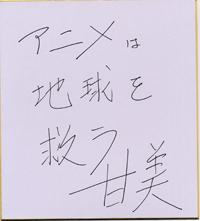 アニメは
地球を
救う
甘美